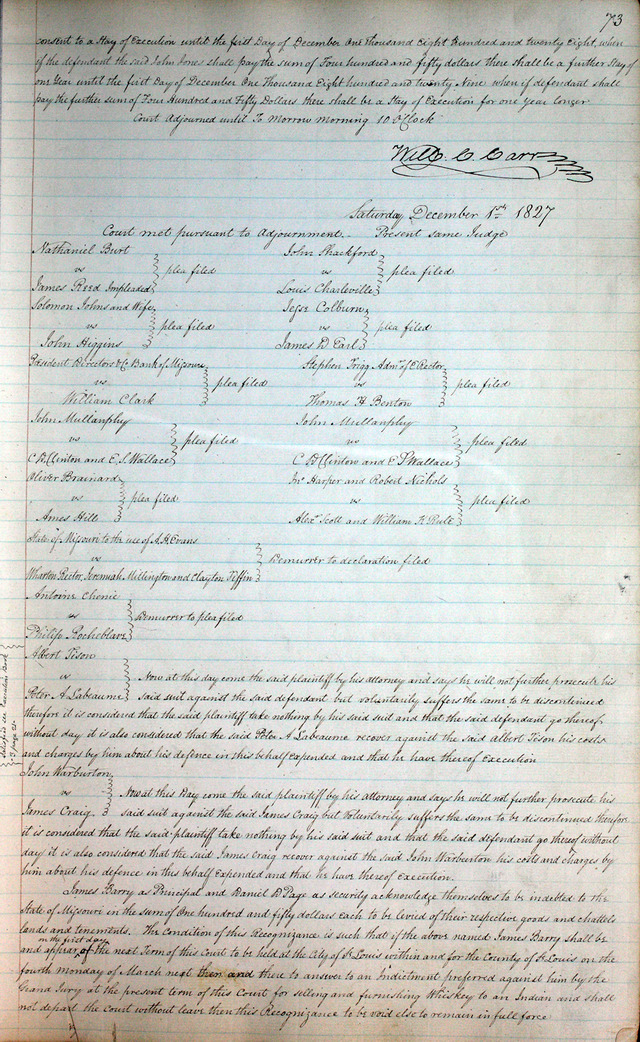 73
consent to a Stay of Execution until the first Day of December One Thousand Eight Hundred and twenty Eight, when
if the defendant the said John Jones shall pay the sum of Four hundred and fifty dollars there shall be a further Stay of
one Year until the first Day of December One Thousand Eight hundred and twenty Nine when if defendant shall
pay the further sum of Four Hundred and Fifty Dollars there shall be a Stay of Execution for one year longer
Court Adjourned until To Morrow morning 10 O'Clock
Will. C. Carr
Saturday December 1st 1827
Court met pursuant to Adjournment. Present same Judge
Nathaniel Burt
vs plea filed
James Reed Impleaded
John Shackford
vs plea filed
Louis Charleville
Solomon Johns and Wife
vs plea filed
John Higgins
Jesse Colburn
vs plea filed
James D Earl
President Directors &c Bank of Missouri
vs plea filed
William Clark
Stephen Trigg Admr of E Rector
vs plea filed
Thomas H Benton
John Mullanphy
vs plea filed
C D Clinton and E. S. Wallace
John Mullanphy
vs plea filed
C D Clinton and E S Wallace
Oliver Brainard
vs plea filed
Ames Hill
Jno Harper and Robert Nichols
vs plea filed
Alexr Scott and William K Rule
State of Missouri to the use of A. H. Evans
vs Demurrer to declaration filed
Wharton Rector, Jeremiah Millington and Clayton Tiffin
Antoine Chenie
vs Demurrer to plea filed
Philip Rocheblave
Albert Tison
vs Now at this day come the said plaintiff by his attorney and says he will not further prosecute his
Peter A. Labeaume said suit against the said defendant but voluntarily suffers the same to be discontinued
therefore it is considered that the said plaintiff take nothing by his said suit and that the said defendant go thereof
without day it is also considered that the said Peter A Labeaume recover against the said Albert Tison his costs
and charges by him about his defence in this behalf expended and that he have thereof execution
John Warburton
vs Now at this Day come the said plaintiff by his attorney and says he will not further prosecute his
James Craig. said suit against the said James Craig but Voluntarily suffers the same to be discontinued therefore
it is considered that the said plaintiff take nothing by his said suit and that the said defendant go thereof without
day it is also considered that the said James Craig recover against the said John Warburton his costs and charges by
him about his defence in this behalf Expended and that he have thereof execution.
James Barry as Principal and Daniel D Page as security acknowledge themselves to be indebted to the
State of Missouri in the sum of One hundred and fifty dollars each to be levied of their respective goods and chattels
lands and tenements. The Condition of this Recognizance is such that if the above named James Barry shall be
on the first day
and appear of the next Term of this Court to be held at the City of St Louis within and for the County of St Louis on the
fourth Monday of March next then and there to answer to an Indictment preferred against him by the
Grand Jury at the present term of this Court for selling and furnishing Whiskey to an Indian and shall
not depart the Court without leave then this Recognizance to be void else to remain in full force